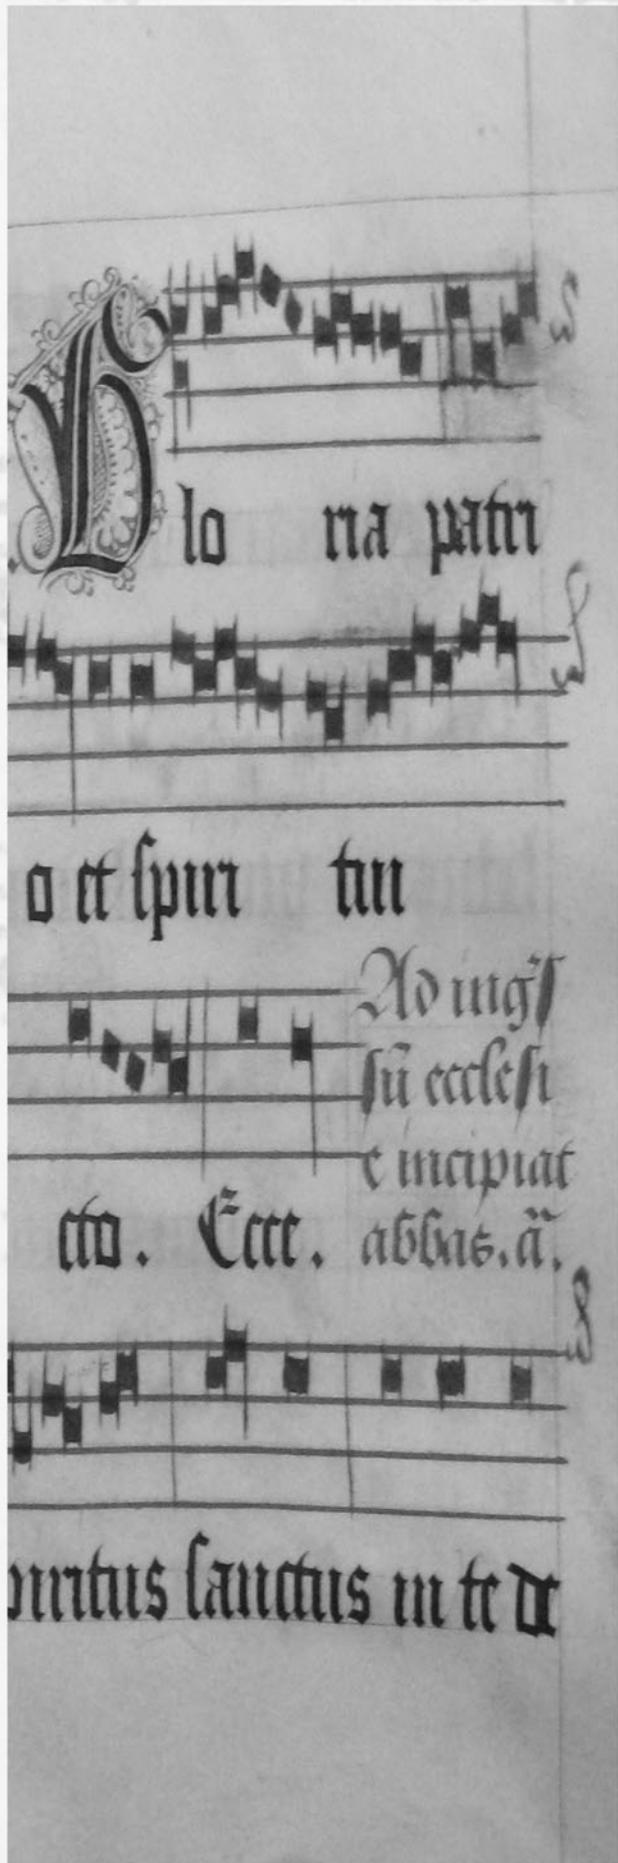 Glo ria patri
o et spiri tui
Ad ing̃s
sũ ecclesi
e incipiat
cto. Ecce. abbas. ã.
piritus sanctus in te de